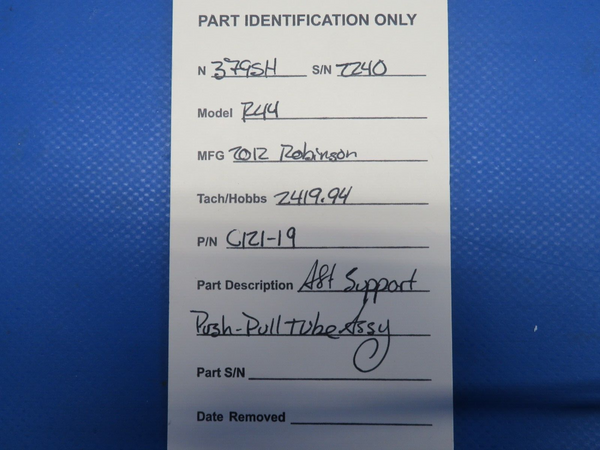 PART IDENTIFICATION ONLY
N 379SH S/N 2240
Model R44
MFG 2012 Robinson
Tach/Hobbs 2419.94
P/N C121-19
Part Description Aft Support
Push-Pull Tube Assy
Part S/N
Date Removed